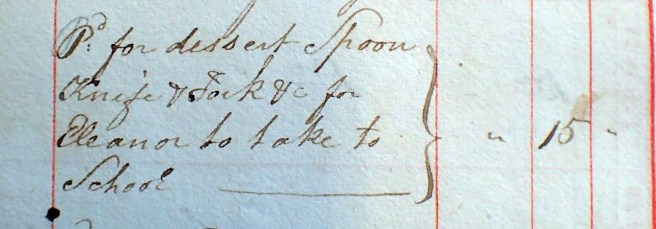 Pd: for dessert Spoon
Knife & Fork &c for
Eleanor to take to } " 15 "
School